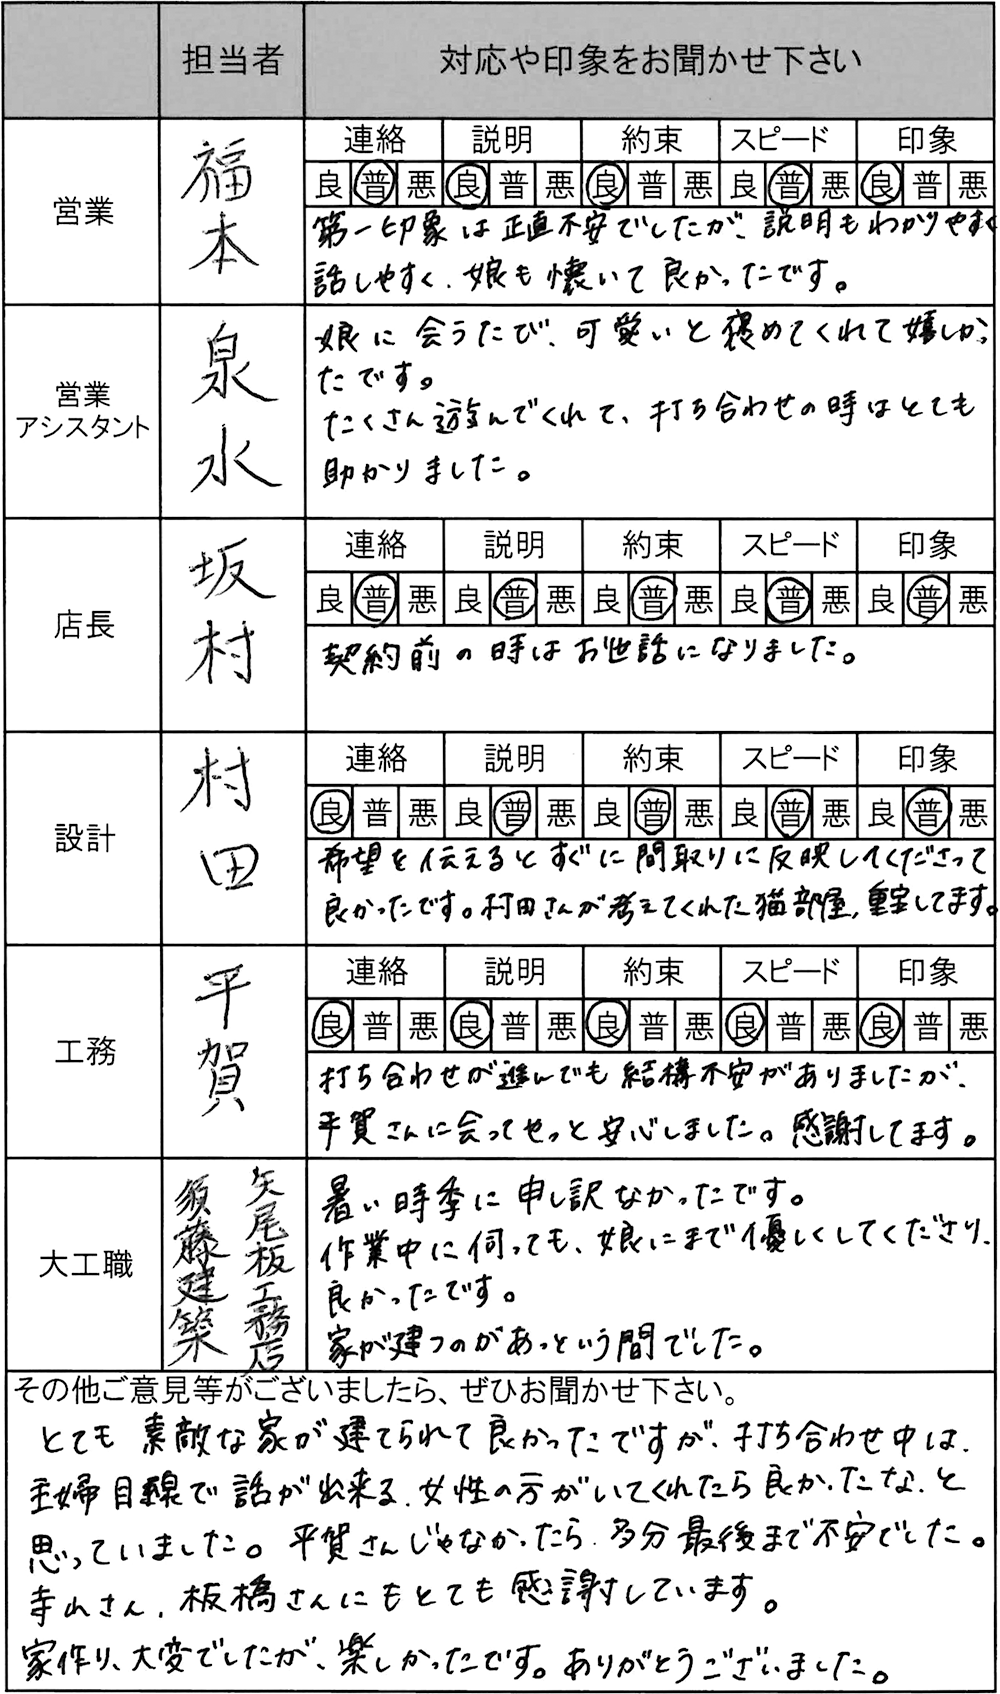 担当者 対応や印象をお聞かせ下さい
営業
福本
連絡 説明 約束 スピード 印象
良 普 悪 良 普 悪 良 普 悪 良 普 悪 良 普 悪
第一印象は正直不安でしたが、説明もわかりやすく
話しやすく、娘も懐いて良かったです。
営業
アシスタント
泉水
娘に会うたび、可愛いと褒めてくれて嬉しかっ
たです。
たくさん遊んでくれて、打ち合わせの時はとても
助かりました。
店長
坂村
連絡 説明 約束 スピード 印象
良 普 悪 良 普 悪 良 普 悪 良 普 悪 良 普 悪
契約前の時はお世話になりました。
設計
村田
連絡 説明 約束 スピード 印象
良 普 悪 良 普 悪 良 普 悪 良 普 悪 良 普 悪
希望を伝えるとすぐに間取りに反映してくださって
良かったです。村田さんが考えてくれた猫部屋、重宝してます。
工務
平賀
連絡 説明 約束 スピード 印象
良 普 悪 良 普 悪 良 普 悪 良 普 悪 良 普 悪
打ち合わせが進んでも結構不安がありましたが、
平賀さんに会ってやっと安心しました。感謝してます。
大工職
矢尾板工務店
須藤建築
暑い時季に申し訳なかったです。
作業中に伺っても、娘にまで優しくしてくださり、
良かったです。
家が建つのがあっという間でした。
その他ご意見等がございましたら、ぜひお聞かせ下さい。
とても素敵な家が建てられて良かったですが、打ち合わせ中は、
主婦目線で話が出来る、女性の方がいてくれたら良かったな、と
思っていました。平賀さんじゃなかったら、多分最後まで不安でした。
寺山さん、板橋さんにもとても感謝しています。
家作り、大変でしたが、楽しかったです。ありがとうございました。